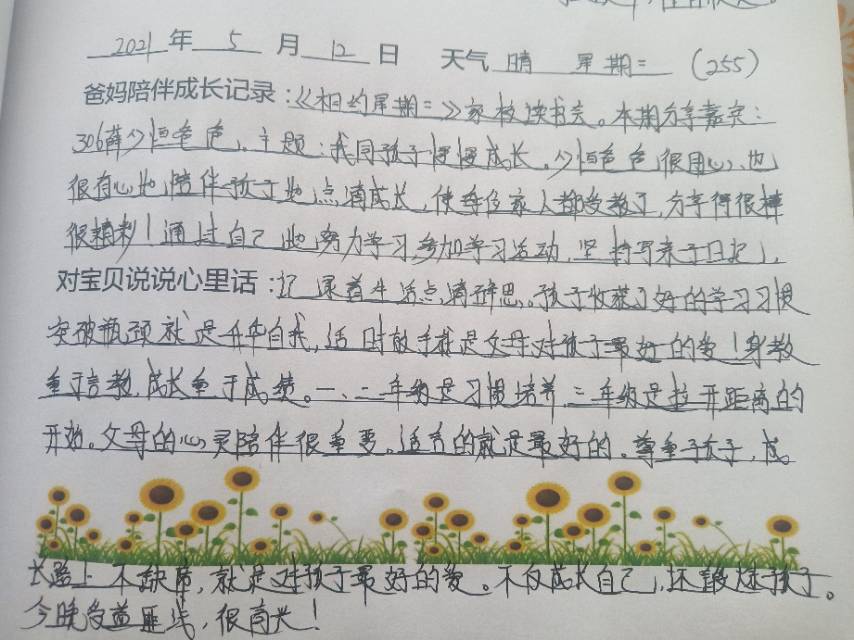 2021 年 5 月 12 日 天气 晴 星期二 (255)
爸妈陪伴成长记录:《相约星期二》家校读书会。本期分享嘉宾:
306薛少恒爸爸,主题:我同孩子慢慢成长,少恒爸爸很用心,也
很有心地陪伴孩子的点滴成长,使每位家人都受教了,分享得很棒
很精彩!通过自己的努力学习,参加学习活动,坚持写亲子日记,
对宝贝说说心里话:记录着生活点滴静思。孩子收获了好的学习习惯
突破瓶颈就是升华自我,适时放手就是父母对孩子最好的爱!身教
重于言教,成长重于成绩。一、二年级是习惯培养,三年级是拉开距离的
开始。父母的心灵陪伴很重要。适合的就是最好的。尊重孩子,成
长路上不缺席,就是对孩子最好的爱。不仅成长自己,还 孩子。
今晚受益匪浅,很高兴!